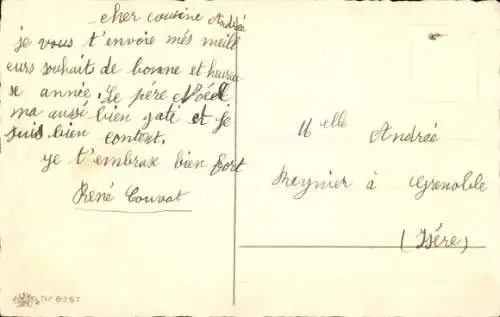 cher cousine Andrée
je vous t'envoie més meill
eurs souhaits de bonne et heureu
se année. Le pére Nöel
ma aussi bien gaté et je
suis bien content.
je t'embrase bien fort
René Couvat
Melle Andreé
Reynier à Grenoble
(Isére)
Nr 6267